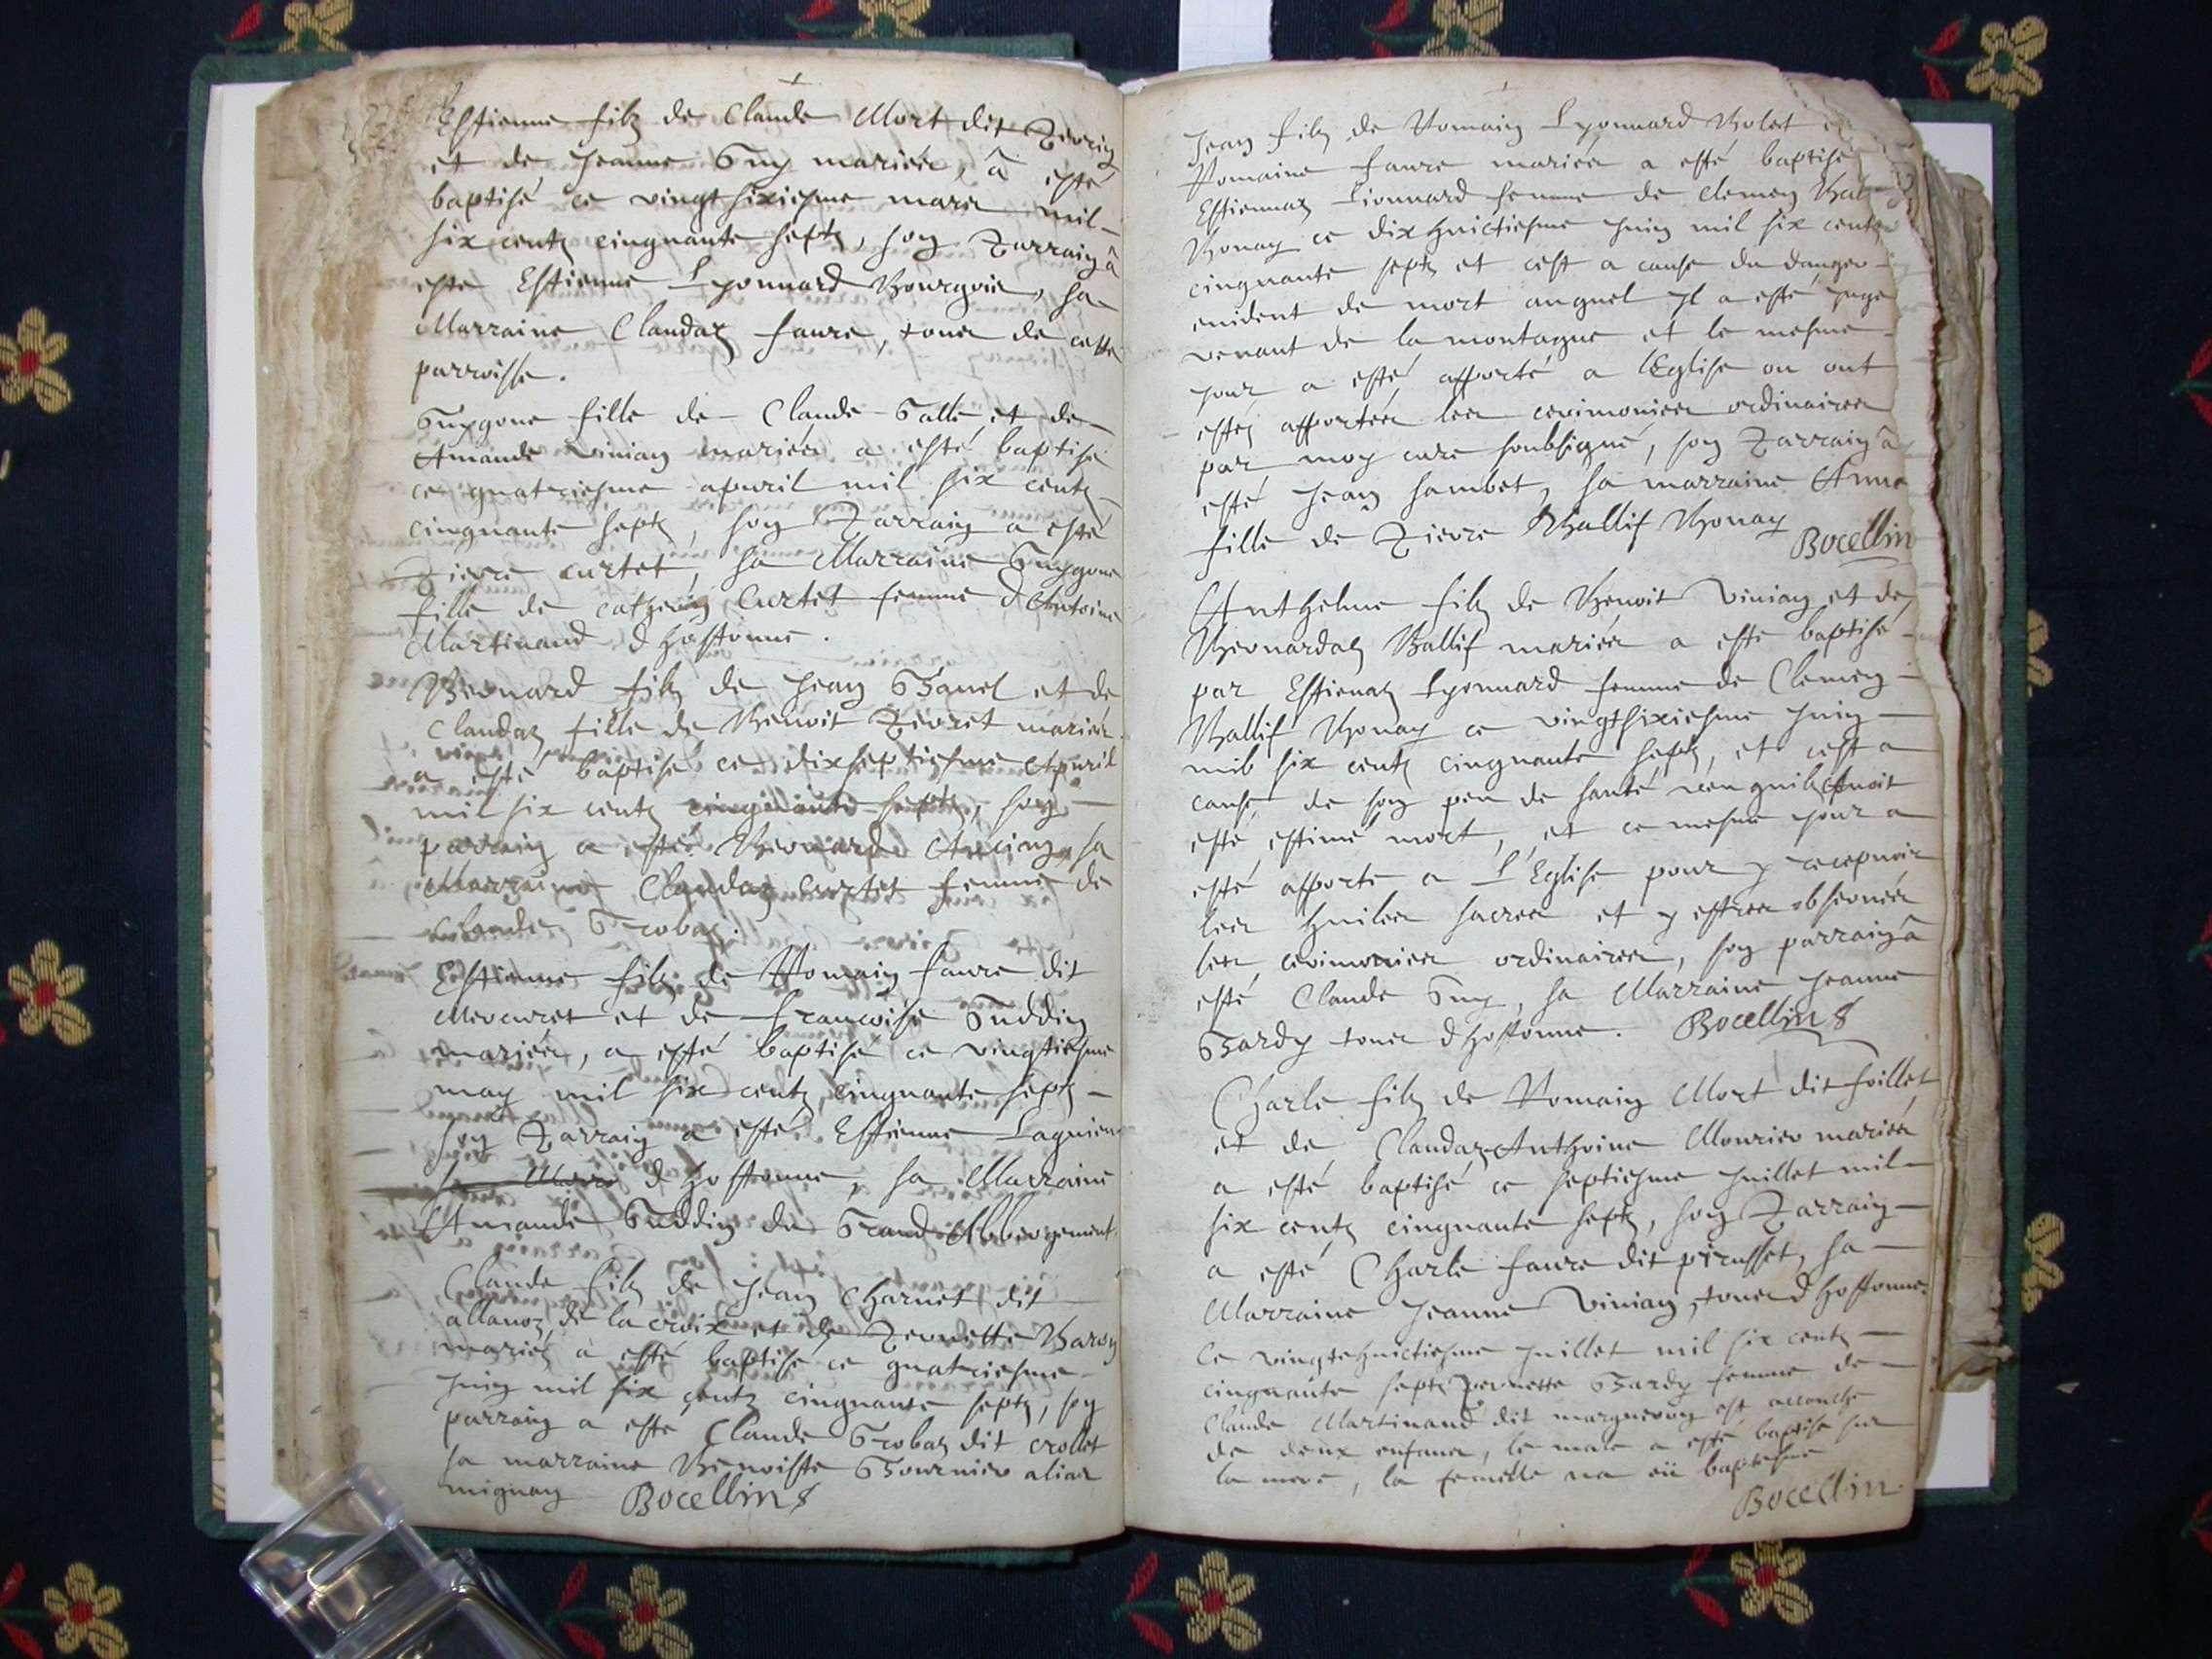 Estienne filz de Claude Mort dit
et de Jeanne Guy mariés, â esté
baptisé ce vingt sixiesme mars mil
six centz cinquante septz, son Parrain â
esté Estienne Lyonnard Bourgois, sa
Marraine Claudaz Faure, tous de cette
parroisse.
Guygone fille de Claude Galle et de
Amande Vinian mariés a esté baptisé
ce quatriesme apvril mil six centz
cinquante septz, son Parrain a esté
Pierre Curtet, sa Marraine Guygone
fille de Curtet femme d Antoine
Martinand d hostonne.
Bernard filz de Jean et de
Claudaz fille de Benoit Perret mariés
a esté baptisé ce dixseptiesme Apvril
mil six centz cinquante septz, son
parrain a esté Bernard Ancian, sa
Marraine Claudaz Curtet femme de
Claude Grobaz.
Estienne filz de Romain Faure dit
Mercuret et de Francoise Guddin
mariés, a esté baptisé ce vingtiesme
may mil six centz cinquante septz
son Parrain a esté Estienne Lagnieu
sa Marr d hostonne, sa Marraine
Amande Guddin du Grand Abbergement.
Claude filz de Jean Charnet dit
allanoz de la croix et de Pernette Baron
mariés â esté baptisé ce quatriesme
Juin mil six centz cinquante septz, son
parrain a esté Claude Grobaz dit crollet
sa marraine Benoiste Fournier alias
mignay Bocellin
Jean filz de Romain Lyonnard Bolet et
Romaine Faure mariés a esté baptisé
Estiennaz Lionnard femme de Clemen
Bonay ce dixhuictiesme Juin mil six centz
cinquante septz et cest a cause du danger
evident de mort auquel Il a esté Juge
venant de la montagne et le mesme
Jour a esté apporté a lEglise ou ont
estés apportées les cerimonies ordinaires
par moy curé soubsigné, son Parrain â
esté Jean Jambet, sa marraine Anne
fille de Pierre Ballif Bonay
Bocellin
Anthelme filz de Benoit Vinian et de
Bernardaz Ballif mariés a esté baptisé
par Estienaz Lyonnard femme de Clemen
Ballif Bonay ce vingtsixiesme Juin
mil six centz cinquante septz, et cest a
cause de son peu de santé veu quil Avoit
esté estimé mort, et ce mesme jour a
esté apporté a L'Eglise pour y recepvoir
les huiles sacrees et y estres observées
les cerimonies ordinaires, son parrain â
esté Claude Guy, sa Marraine Jeanne
Tardy tous d hostonne. Bocellin
Charle filz de Romain Mort dit Foillet
et de Claudaz Anthoine Monrier mariés
a esté baptisé ce septiesme Juillet mil
six centz cinquante septz, son Parrain
a esté Charle Faure dit pirusset, sa
Marraine Jeanne Vinian, tous d hostonne.
Ce vingtehuictiesme Juillet mil six centz
cinquante septz pernette Tardy femme de
Claude Martinand dit margueron est accouche
de deux enfans, le male a esté baptise sur
la mere, la femelle na eü baptesme
Bocellin